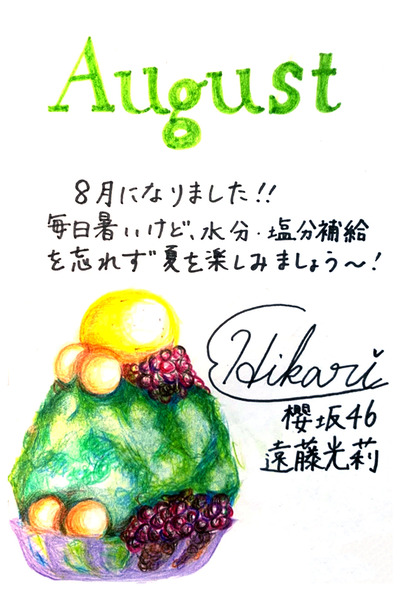 August
8月になりました!!
毎日暑いけど、水分・塩分補給
を忘れず夏を楽しみましょう〜!
Hikari
櫻坂46
遠藤光莉